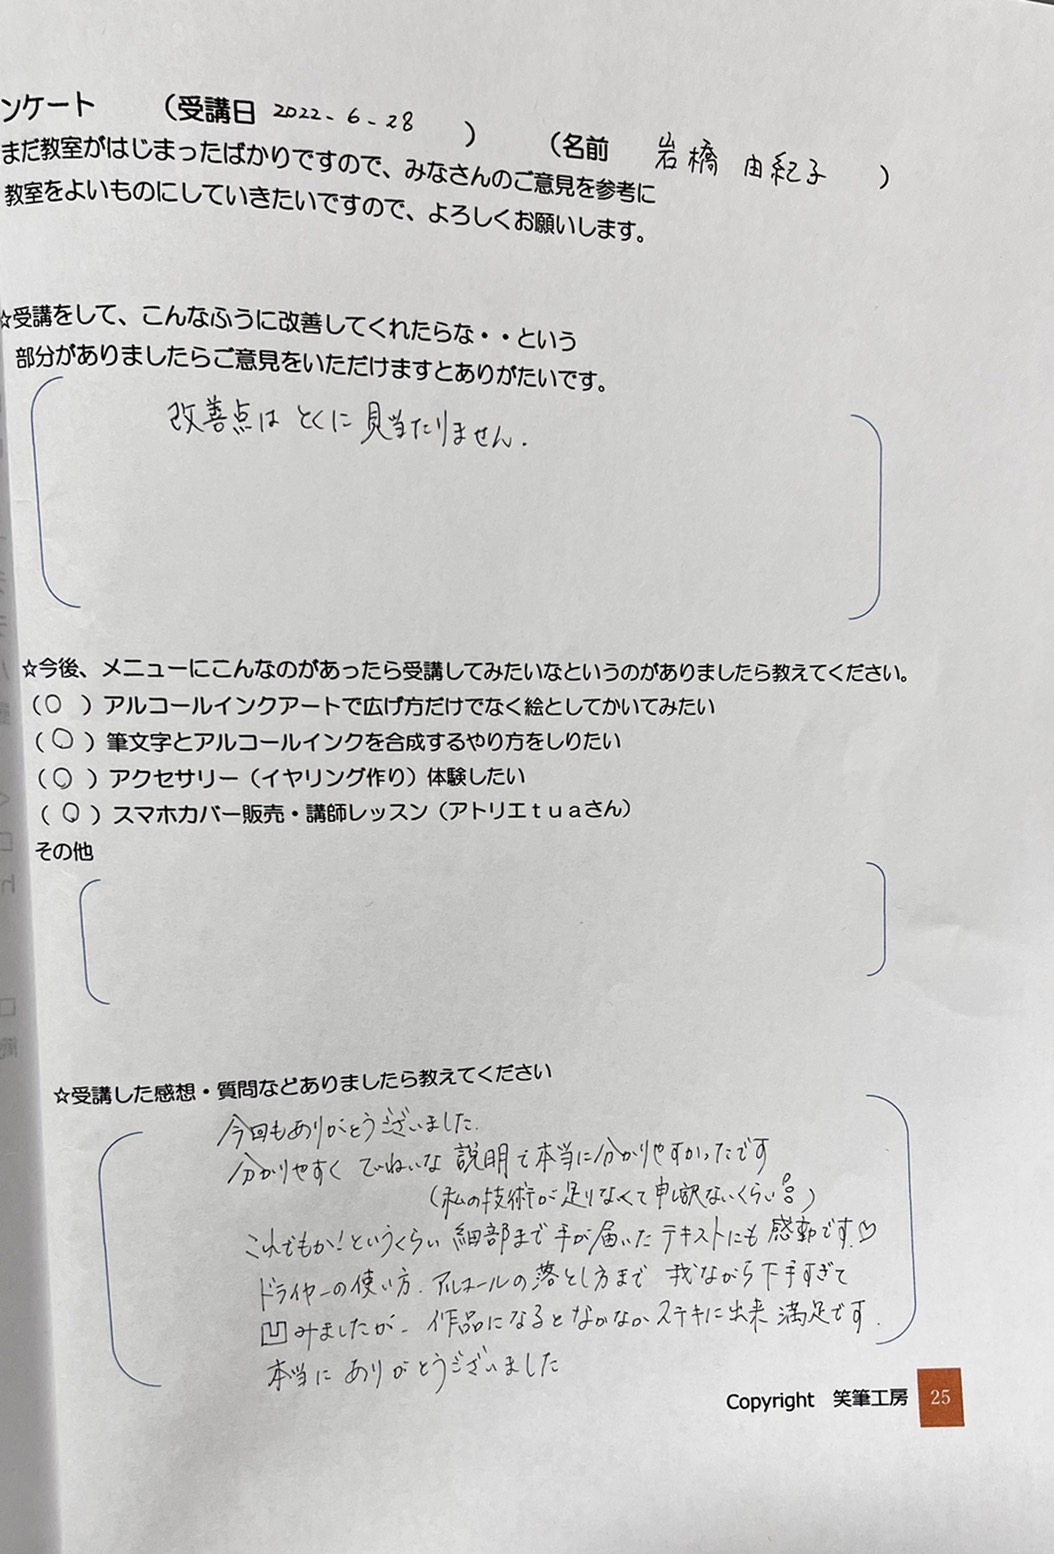 ンケート （受講日 2022-6-28 ） （名前 岩橋 由紀子 ）
まだ教室がはじまったばかりですので、みなさんのご意見を参考に
教室をよいものにしていきたいですので、よろしくお願いします。
☆受講をして、こんなふうに改善してくれたらな・・という
部分がありましたらご意見をいただけますとありがたいです。
改善点は とくに 見当たりません.
☆今後、メニューにこんなのがあったら受講してみたいなというのがありましたら教えてください。
（○ ）アルコールインクアートで広げ方だけでなく絵としてかいてみたい
（○ ）筆文字とアルコールインクを合成するやり方をしりたい
（○ ）アクセサリー（イヤリング作り）体験したい
（○ ）スマホカバー販売・講師レッスン（アトリエｔｕａさん）
その他
☆受講した感想・質問などありましたら教えてください
今回もありがとうございました.
分かりやすく ていねいな 説明で本当に分かりやすかったです
（私の技術が足りなくて申し訳ないくらい）
これでもか！というくらい 細部まで 手が届いた テキストにも 感動です.♡
ドライヤーの使い方. アルコールの落とし方まで 我ながら下手すぎて
凹みましたが- 作品になるとなかなかステキに出来 満足です.
本当に ありがとうございました
Copyright 笑筆工房 25